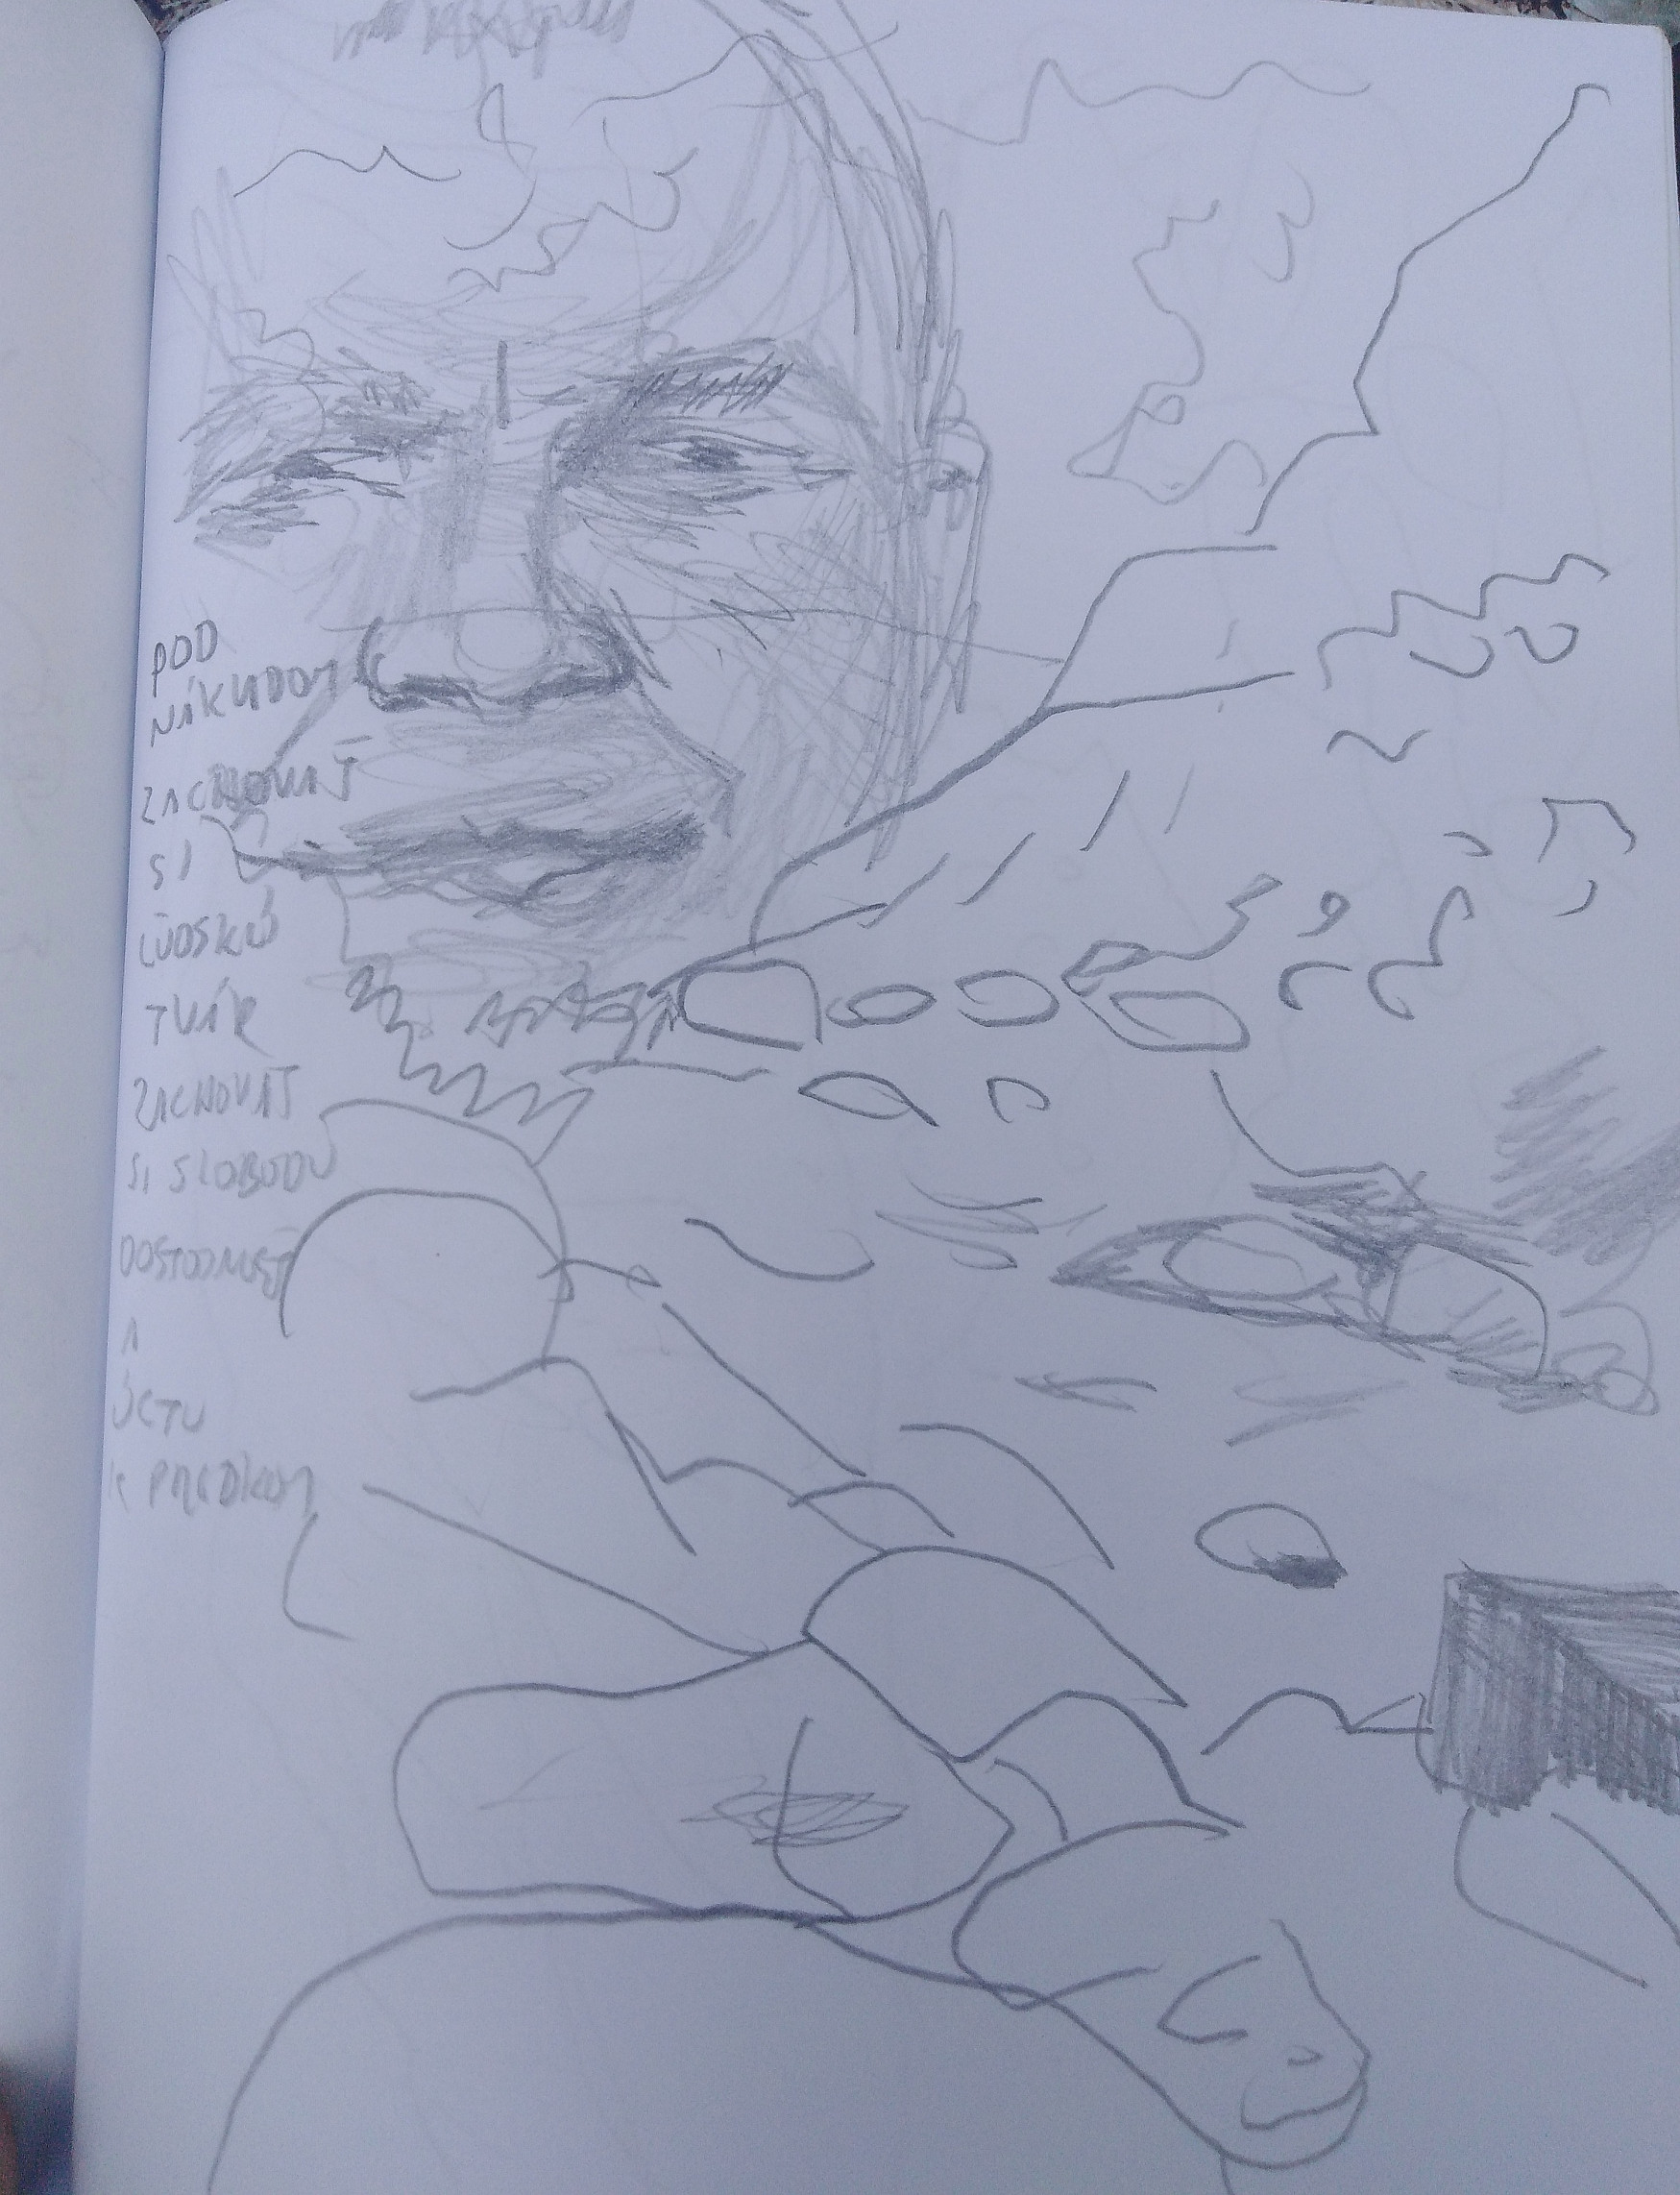 POD
NÁKLADOM
ZACHOVAŤ
SI
ĽUDSKÚ
TVÁR
ZACHOVAŤ
SI SLOBODU
DOSTOJNOSŤ
A
ÚCTU
K PREDKOM